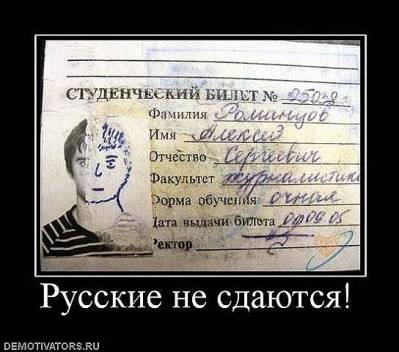 СТУДЕНЧЕСКИЙ БИЛЕТ №
Фамилия Романцов
Имя Алексей
Отчество Сергеевич
Факультет журналистики
Форма обучения очная
Дата выдачи билета 01 09 05
Ректор
Русские не сдаются!
DEMOTIVATORS.RU